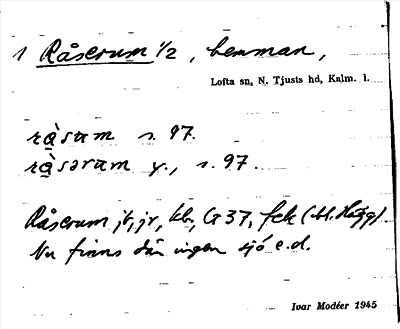 1 Råserum 1/2, hemman,
Lofta sn, N. Tjusts hd, Kalm. l.
rą̀sum s. 97.
rą̀sərum y., s. 97.
Råserum jb, jr, kb, G 37, fek (bl. Hägg).
Nu finns där ingen sjö e.d.
Ivar Modéer 1945